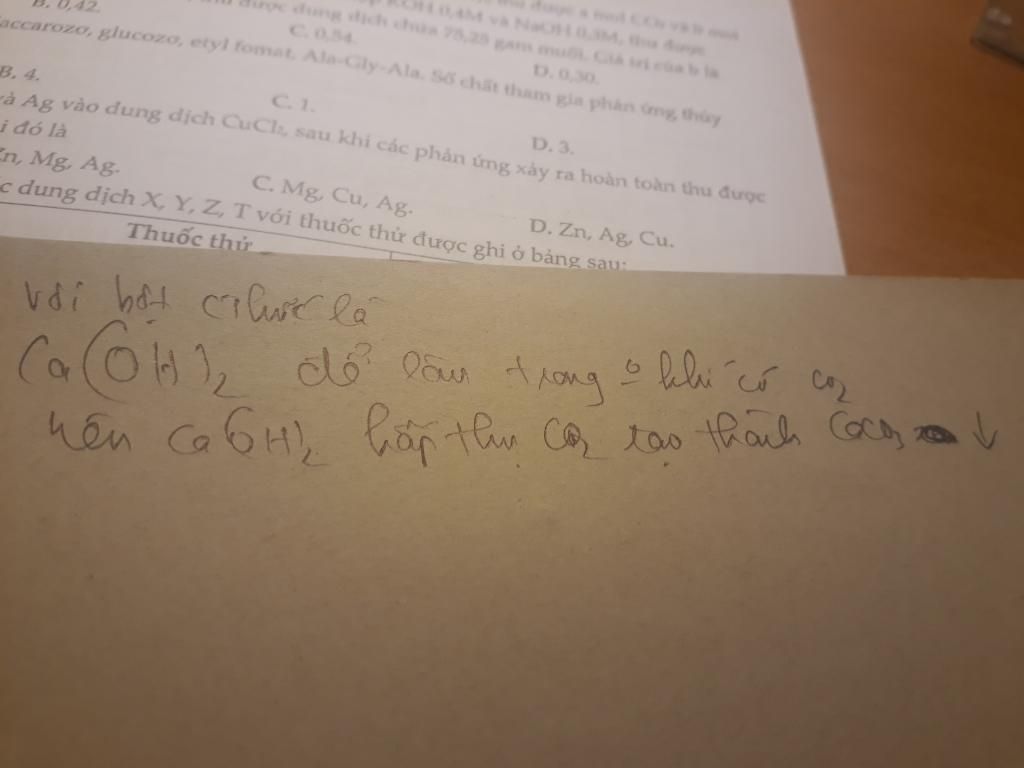 B. 0,42.
KOH 0,4M và NaOH 0,3M, thu được
được dung dịch chứa 75,25 gam muối. Giá trị của b là
C. 0,54.
D. 0,30.
accarozo, glucozo, etyl fomat, Ala-Gly-Ala. Số chất tham gia phản ứng thủy
B. 4.
C. 1.
D. 3.
và Ag vào dung dịch CuCl₂, sau khi các phản ứng xảy ra hoàn toàn thu được
i đó là
Zn, Mg, Ag.
C. Mg, Cu, Ag.
D. Zn, Ag, Cu.
c dung dịch X, Y, Z, T với thuốc thử được ghi ở bảng sau:
Thuốc thử
Vôi bột là
Ca(OH)₂ để lâu trong khí có CO₂
nên Ca(OH)₂ hấp thụ CO₂ tạo thành CaCO₃ ↓